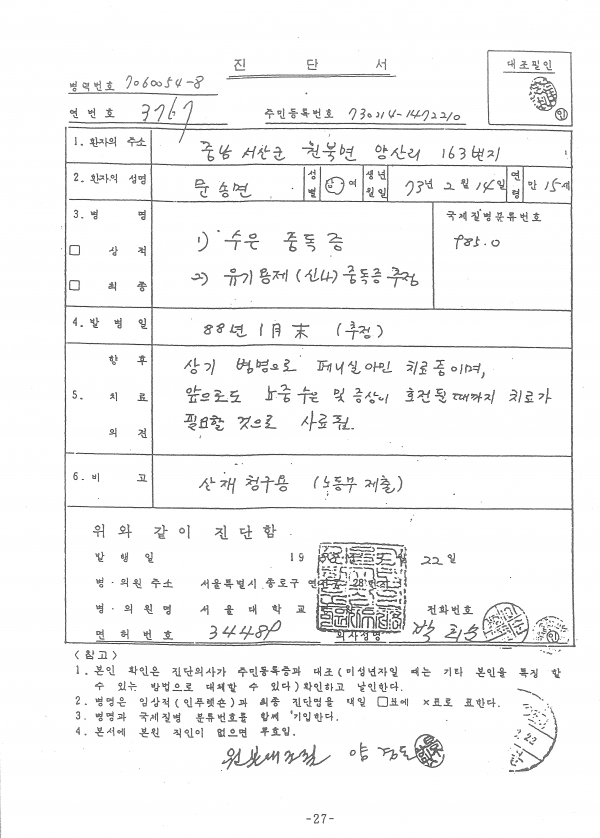 진 단 서
대조필인
병력번호 7060054-8
연 번 호 3767
주민등록번호 730214-1472210
1. 환자의 주소 충남 서산군 원북면 양산리 163번지
2. 환자의 성명 문송면 성별 남 여 생년월일 73년 2월 14일 연령 만 15세
3. 병 명 국제질병분류번호
□ 상 적 1) 수은 중독증 985.0
□ 최 종 2) 유기용제(신나) 중독증 추정
4. 발 병 일 88年 1月 末 (추정)
향 후 상기 병명으로 페니실아민 치료중이며,
5. 치 료 앞으로도 뇨중 수은 및 증상이 호전될때까지 치료가
의 견 필요할 것으로 사료됨.
6. 비 고 산재 청구용 (노동부 제출)
위 와 같 이 진 단 함
발 행 일 19 22 일
병·의원 주소 서울특별시 종로구 28번지
병·의원명 서 울 대 학 교 전화번호
면 허 번 호 34489 의사성명 박희순
<참고>
1. 본인 확인은 진단의사가 주민등록증과 대조(미성년자일 때는 기타 본인을 특징 할
수 있는 방법으로 대체할 수 있다)확인하고 날인한다.
2. 병명은 임상적(인푸렛숀)과 최종 진단명을 매일 □표에 ×표로 표한다.
3. 병명과 국제질병 분류번호를 함께 기입한다.
4. 본서에 본원 직인이 없으면 무효임.
원본대조필 양길승
2.22
-27-